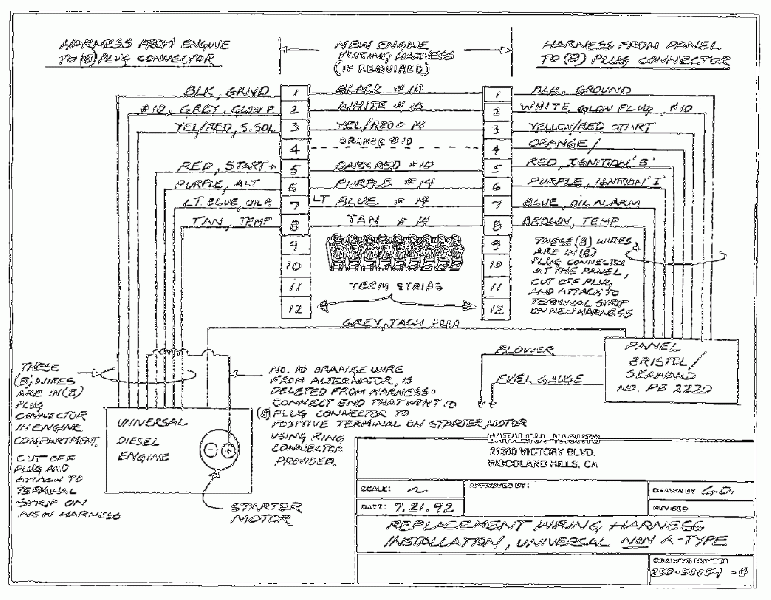 HARNESS FROM ENGINE
TO (8) PLUG CONNECTOR
NEW ENGINE
HARNESS
(IF REQUIRED)
HARNESS FROM PANEL
TO (8) PLUG CONNECTOR
BLK, GRND 1 BLACK # 1 BLK, GROUND
#10, GREY, GLOW P 2 WHITE # 2 WHITE GLOW PLUG, #10
YEL/RED, S.SOL 3 YEL/RED # 14 3 YELLOW/RED START
4 #10 4 ORANGE/
RED, START + 5 RED #10 5 RED IGNITION 'B'
PURPLE, ALT 6 PURPLE # 14 6 PURPLE, IGNITION 'I'
LT BLUE, OIL 7 LT BLUE # 14 7 BLUE, OIL ALARM
TAN, TEMP 8 TAN # 14 8 BROWN, TEMP
9 9
10 10
11 11
12 12
TERM STRIPS
THESE (8) WIRES
ARE IN (8)
PLUG CONNECTOR
AT THE PANEL,
CUT OFF PLUG
AND ATTACH TO
TERMINAL STRIP
ON NEW HARNESS
GREY, TACH
BLOWER
FUEL GAUGE
PANEL
BRISTOL/
SEAWARD
NO. PB 2220
THESE
(8) WIRES
ARE IN (8)
PLUG
CONNECTOR
IN ENGINE
COMPARTMENT
CUT OFF
PLUG AND
ATTACH TO
TERMINAL
STRIP ON
NEW HARNESS
NO. 10 ORANGE WIRE
FROM ALTERNATOR, IS
DELETED FROM HARNESS-
CONNECT END THAT WENT TO
(8) PLUG CONNECTOR TO
POSITIVE TERMINAL ON STARTER MOTOR
USING RING
CONNECTOR
PROVIDED.
UNIVERSAL
DIESEL
ENGINE
STARTER
MOTOR
21300 VICTORY BLVD.
WOODLAND HILLS, CA
SCALE: APPROVED BY: DRAWN BY
DATE: 7.21.92 REVISED
REPLACEMENT WIRING HARNESS
INSTALLATION, UNIVERSAL NON A-TYPE